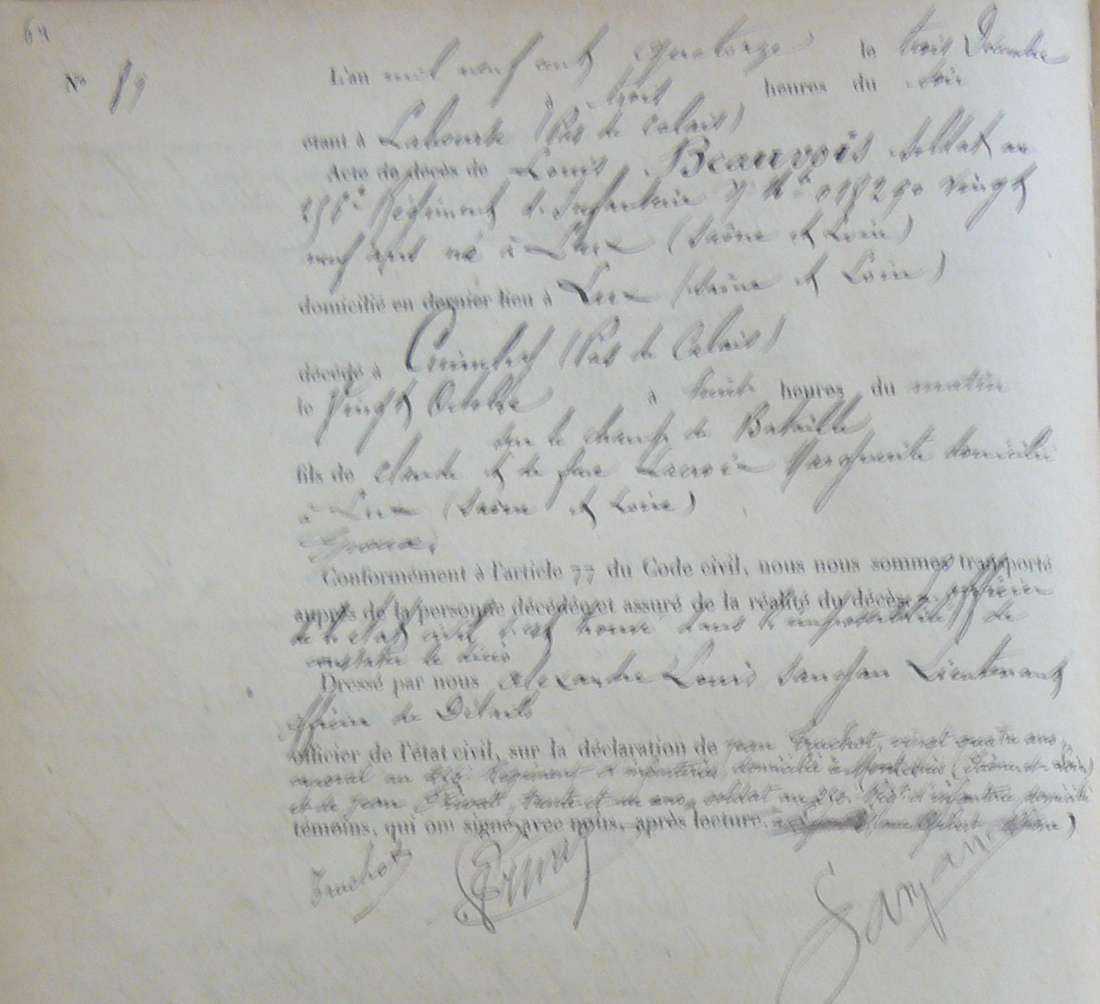 64
N° 89 L'an mil neuf cent quatorze le trois Décembre
à trois heures du soir
étant à Labourse (Pas de Calais)
Acte de décès de Louis Beauvois soldat au
Régiment d'Infanterie Vingt
neuf ans né à Lux (Saône et Loire)
domicilié en dernier lieu à Lux (Saône et Loire)
décédé à (Pas de Calais)
le Vingt Octobre à huit heures du matin
sur le champ de Bataille
fils de Claude et de feue Lacroix Marguerite domicilié
à Lux (Saône et Loire)
Conformément à l'article 77 du Code civil, nous nous sommes transporté
auprès de la personne décédée et assuré de la réalité du décès. officier
de l'etat civil s'est trouvé dans l'impossibilité de
constater le décès
Dressé par nous Alexandre Louis Lieutenant
officier de Détails
officier de l'état civil, sur la déclaration de Jean Truchot, vingt quatre ans,
caporal au Régiment d'infanterie, domicilié à Montcenis (Saône-et-Loire)
et de Jean trente et un ans, soldat au Rég.t d'infanterie, domicilié
témoins, qui ont signé avec nous, après lecture.
Truchot